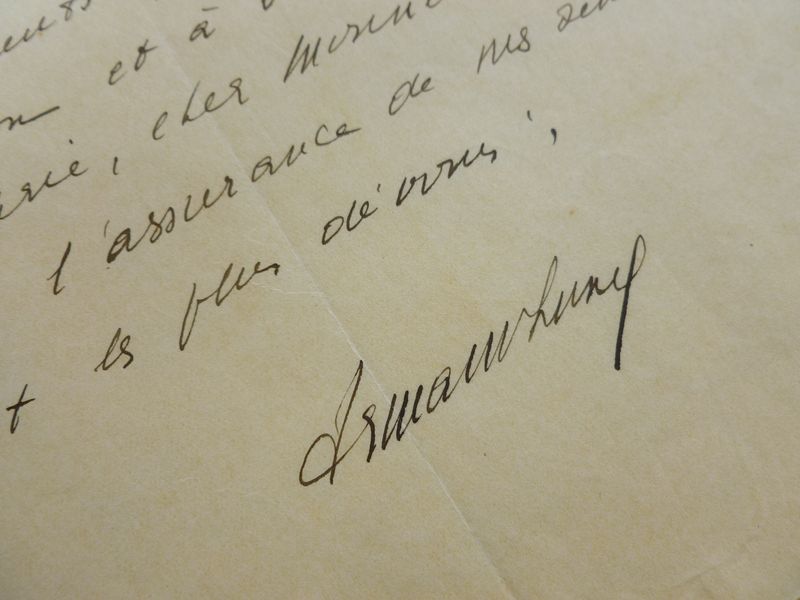 et à
, cher Monsi
l'assurance de mes sen
les plus dévoués,
Armand Lunel